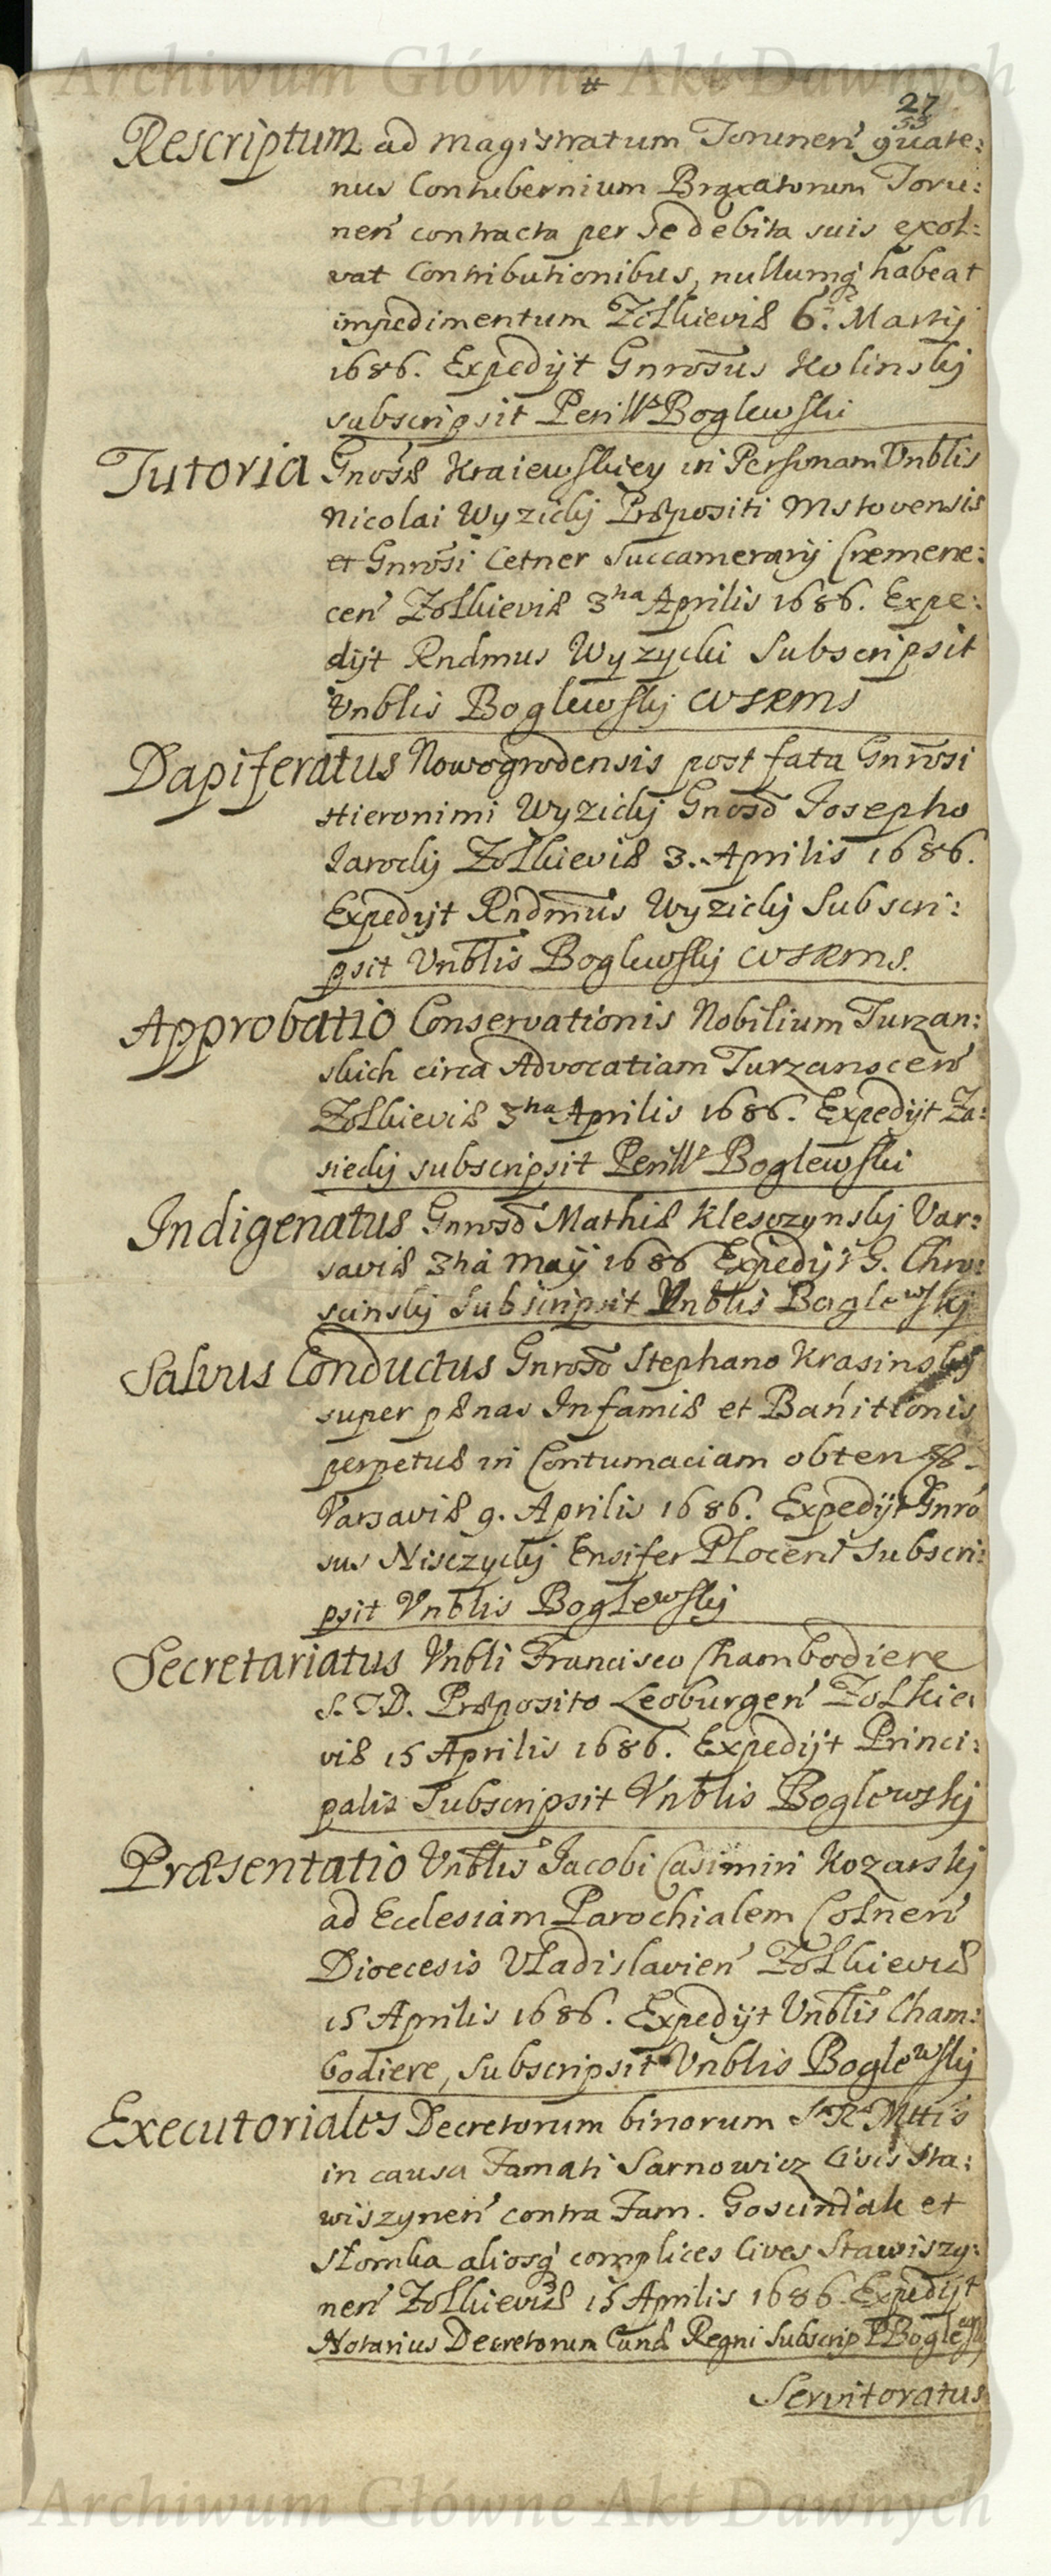 Archiwum Główne Akt Dawnych
#
27
53
Rescriptum ad Magistratum Torunen̄ quate:
nus Contubernium Braxatorum Toru:
nen̄ contracta per se debita suis exol:
vat Contributionibus, nullumq́ habeat
impedimentum Zolkieviæ 6. Martij
1686. Expedijt Gnrosus Kolinskj
subscripsit Perillis Boglewski
Tutoria Gnosæ Kraiewskiey in Personam Vnblis
Nicolai Wyzickj Præpositi Mstovensis
et Gnrosi Cetner Succamerarij Cremene:
cen̄ Zolkieviæ 3tia Aprilis 1686. Expe:
dijt Rndmus Wyzycki Subscripsit
Vnblis Boglewskj CVSRMS
Dapiferatus Nowogrodensis post fata Gnrosi
Hieronimi Wyzickj Gnoso Iosepho
Iarockj Zolkieviæ 3. Aprilis 1686.
Expedijt Rndmus Wyzickj Subscri:
psit Vnblis Boglewskj CVSRMS.
Approbatio Conservationis Nobilium Turzan:
skich circa Advocatiam Turzanscen̄
Zolkieviæ 3tia Aprilis 1686. Expedijt Za:
siedkj subscripsit Perills Boglewski
Indigenatus Gnroso Mathiæ Klesczynskj Var:
saviæ 3tia Maij 1686 Expedijt G. Chro:
scinskj Subscripsit Vnblis Boglewskj
Salvus Conductus Gnroso Stephano Krasinskj
super pænas Infamiæ et Bańitionis
perpetuæ in Contumaciam obten
Varsaviæ 9. Aprilis 1686. Expedijt Gnro
sus Nisczyckj Ensifer Plocen̄ Subscri:
psit Vnblis Boglewskj
Secretariatus Vnbli Francisco Chambodiere
S.T.D. Præposito Leoburgen̄ Zolkie:
viæ 15 Aprilis 1686. Expedijt Princi:
palis Subscripsit Vnblis Boglewskj
Præsentatio Vnblis Iacobi Casimiri Kozarskj
ad Ecclesiam Parochialem Colnen̄
Dioecesis Vladislavien̄ Zolkieviæ
15 Aprilis 1686. Expedijt Vnblis Cham:
bodiere, Subscripsit Vnblis Boglewskj
Executoriales Decretorum binorum S.R.Mttis
in causa Famati Sarnowicz Civis Sta:
wiszynen̄ contra Fam. Goscindiak et
Słomka aliosq́ complices Cives Stawiszy:
nen̄ Zolkieviæ 15 Aprilis 1686. Expedijt
Notarius Decretorum Canæ Regni Subscrip P Boglewskj
Servitoratus
Archiwum Główne Akt Dawnych